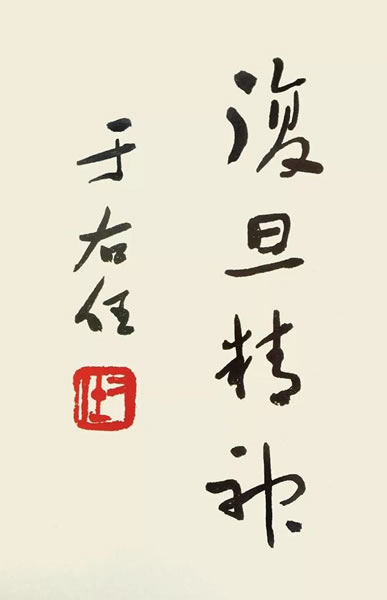 復旦精神
于右任